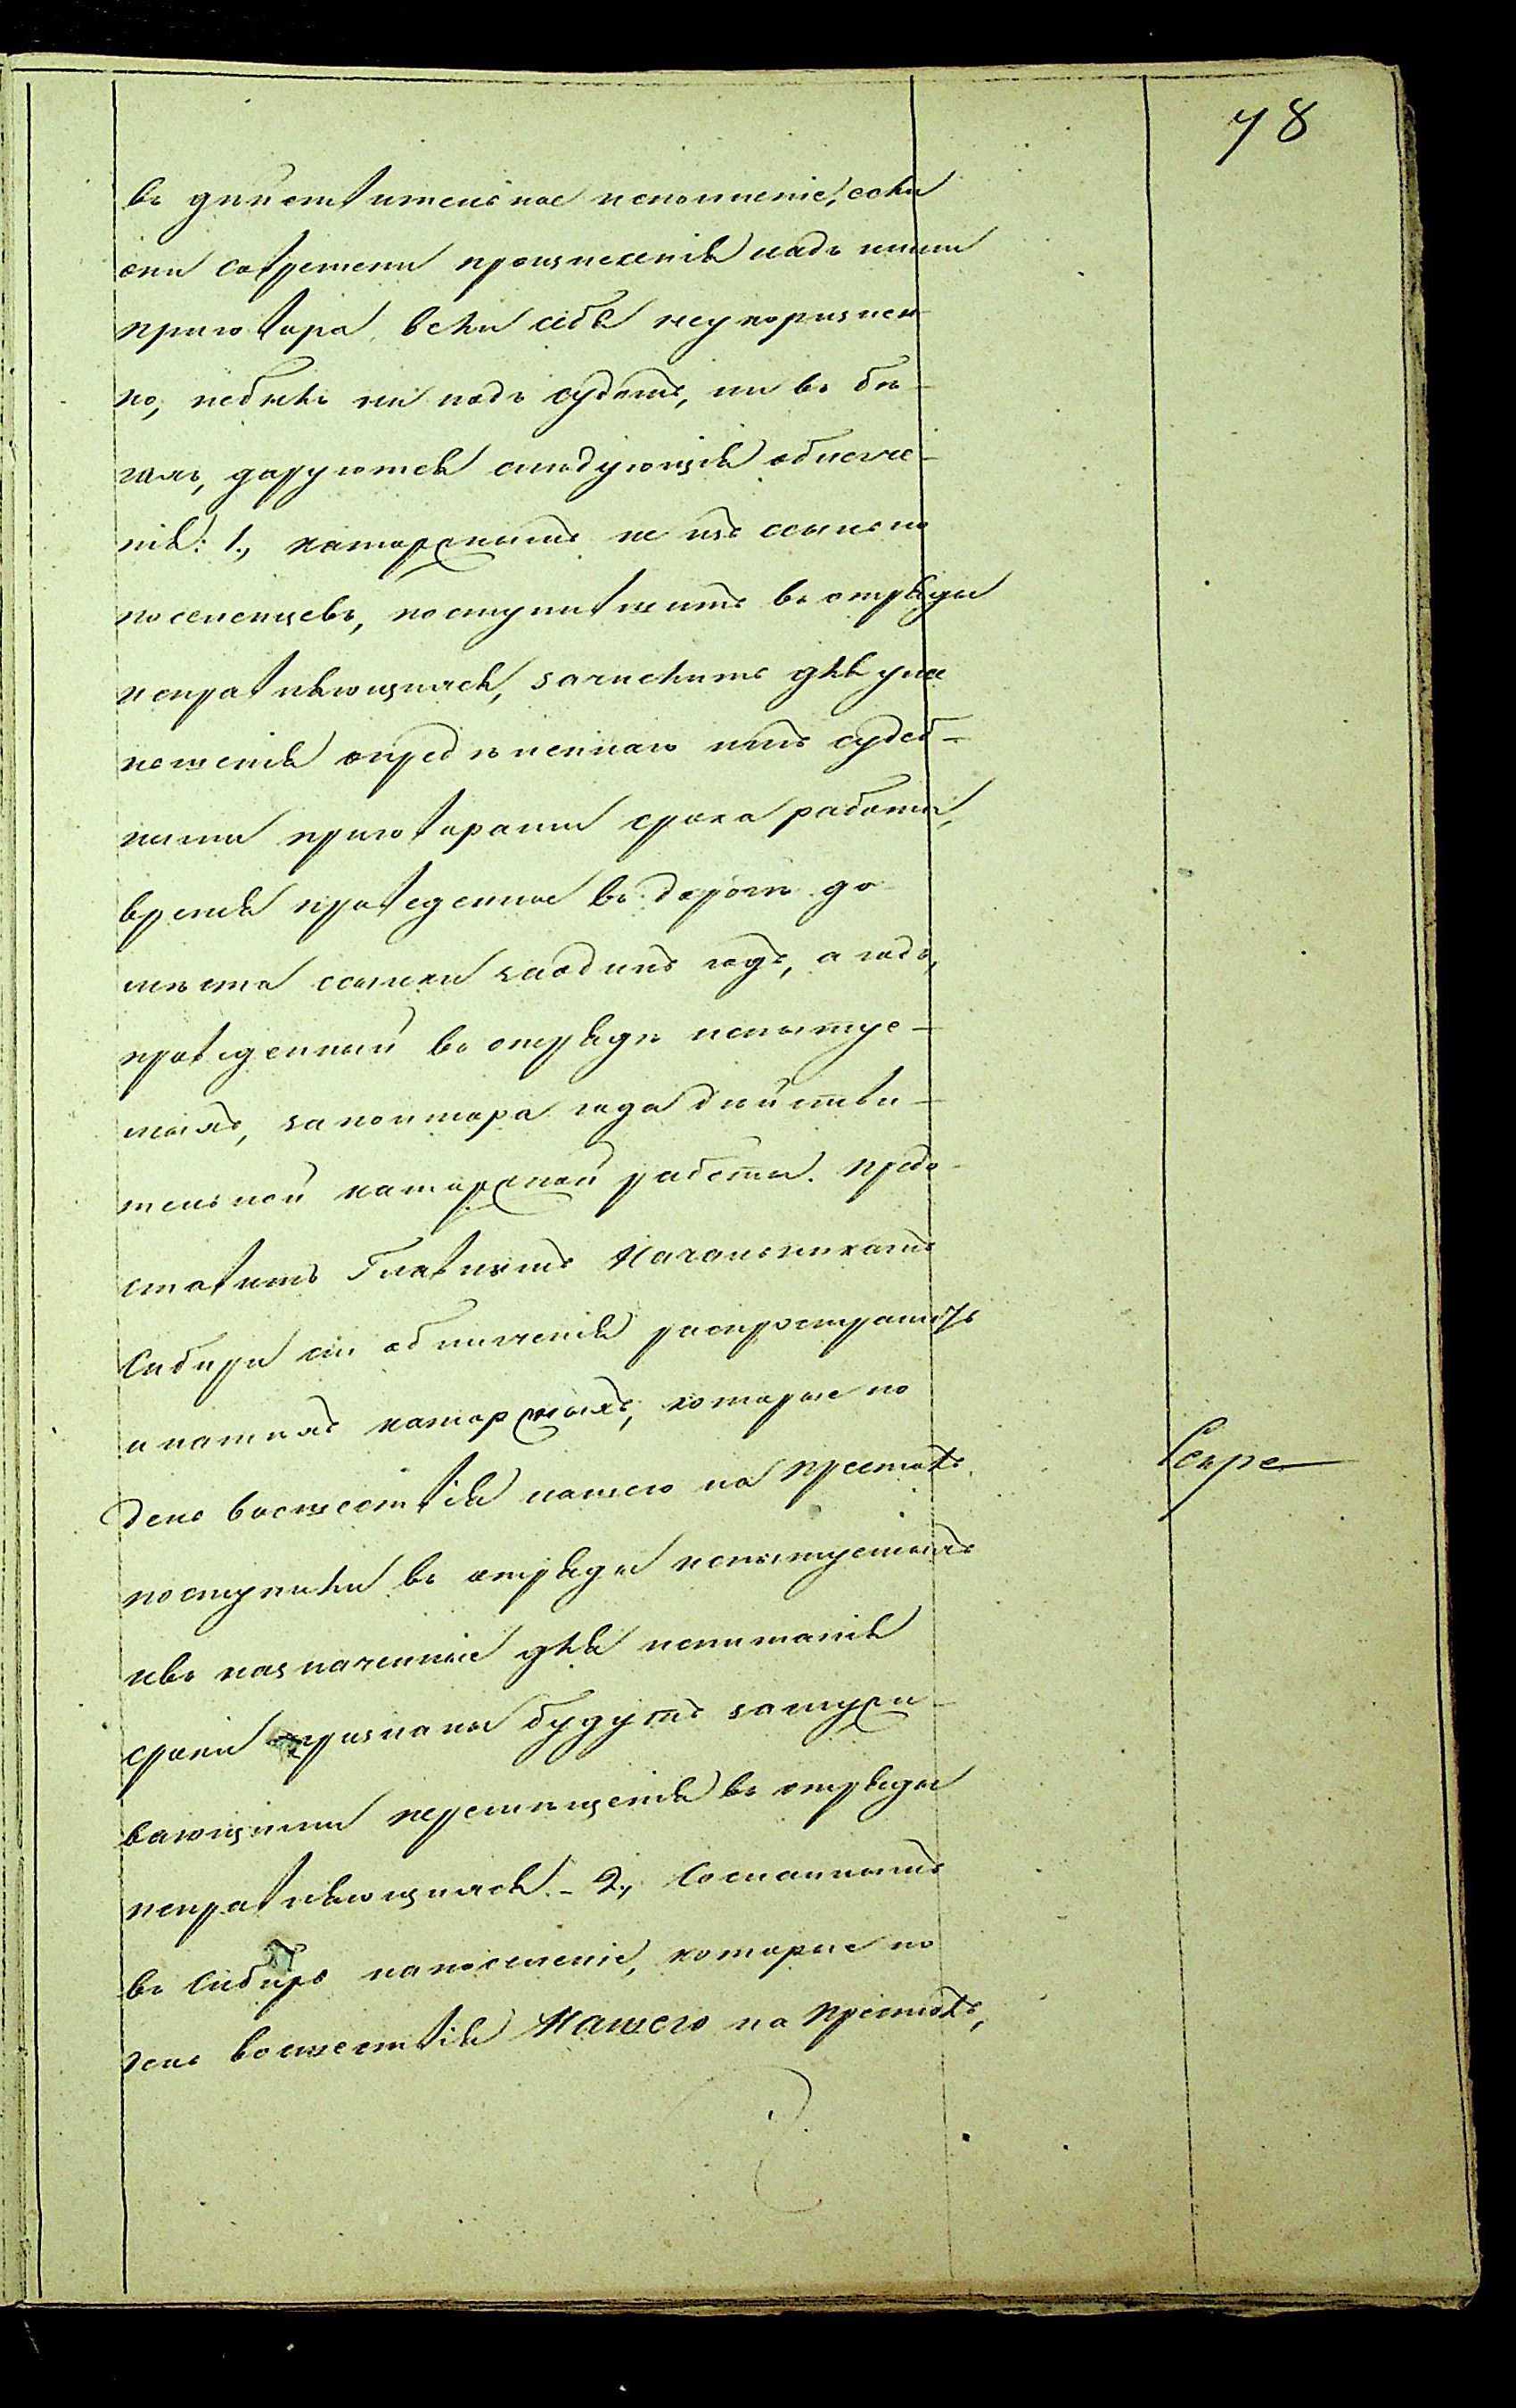 78
въ дѣйствительное исполненіе, если
они современи произнесенія надъ ними
приговора вели себя неукоризнен
но, небывъ ни подъ судомъ, ни въ бѣ-
гахъ, даруются слѣдующія облегче-
нія: 1., каторжнымъ не изъ ссыльно
поселенцевъ, поступившимъ въ отряды
исправляющихся, зачислить для упол
ненія опредѣленнаго имъ судеб-
ными приговорами срока работы,
время проведенное въ дорогѣ до
мѣста ссылки заодинъ годъ, а годъ,
проведенный въ отрядѣ испытуе-
мыхъ, заполтора года дѣйстви-
тельной каторжной работы. Предо-
ставить Главнымъ Начальникамъ
Сибири сіи облегченія распространить
и натѣхъ каторжныхъ, которые по
день восшествія нашего на Престолъ,
Секре
поступили въ отряды испытуемыхъ
ивъ назначенные для испытанія
сроки признаны будутъ заслужи-
вающими перемѣщенія въ отряды
исправляющихся. - 2., Сосланнымъ
въ Сибирь напоселеніе, которые по
день восшествія Нашего на Престолъ,